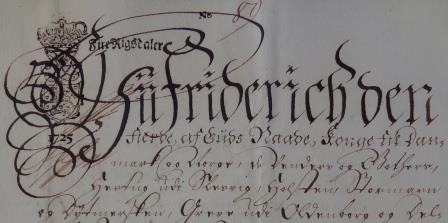 No 81
Fire Rigsdaler
Vii Friderich den
1725
fierde, af Guds Naade, Konge til Dan,
mark og Norge, de Venders og Gothers,
Hertug udi Slesvig, Holsten, Stormarn
og Dytmersken, Greve udi Oldenborg og Del